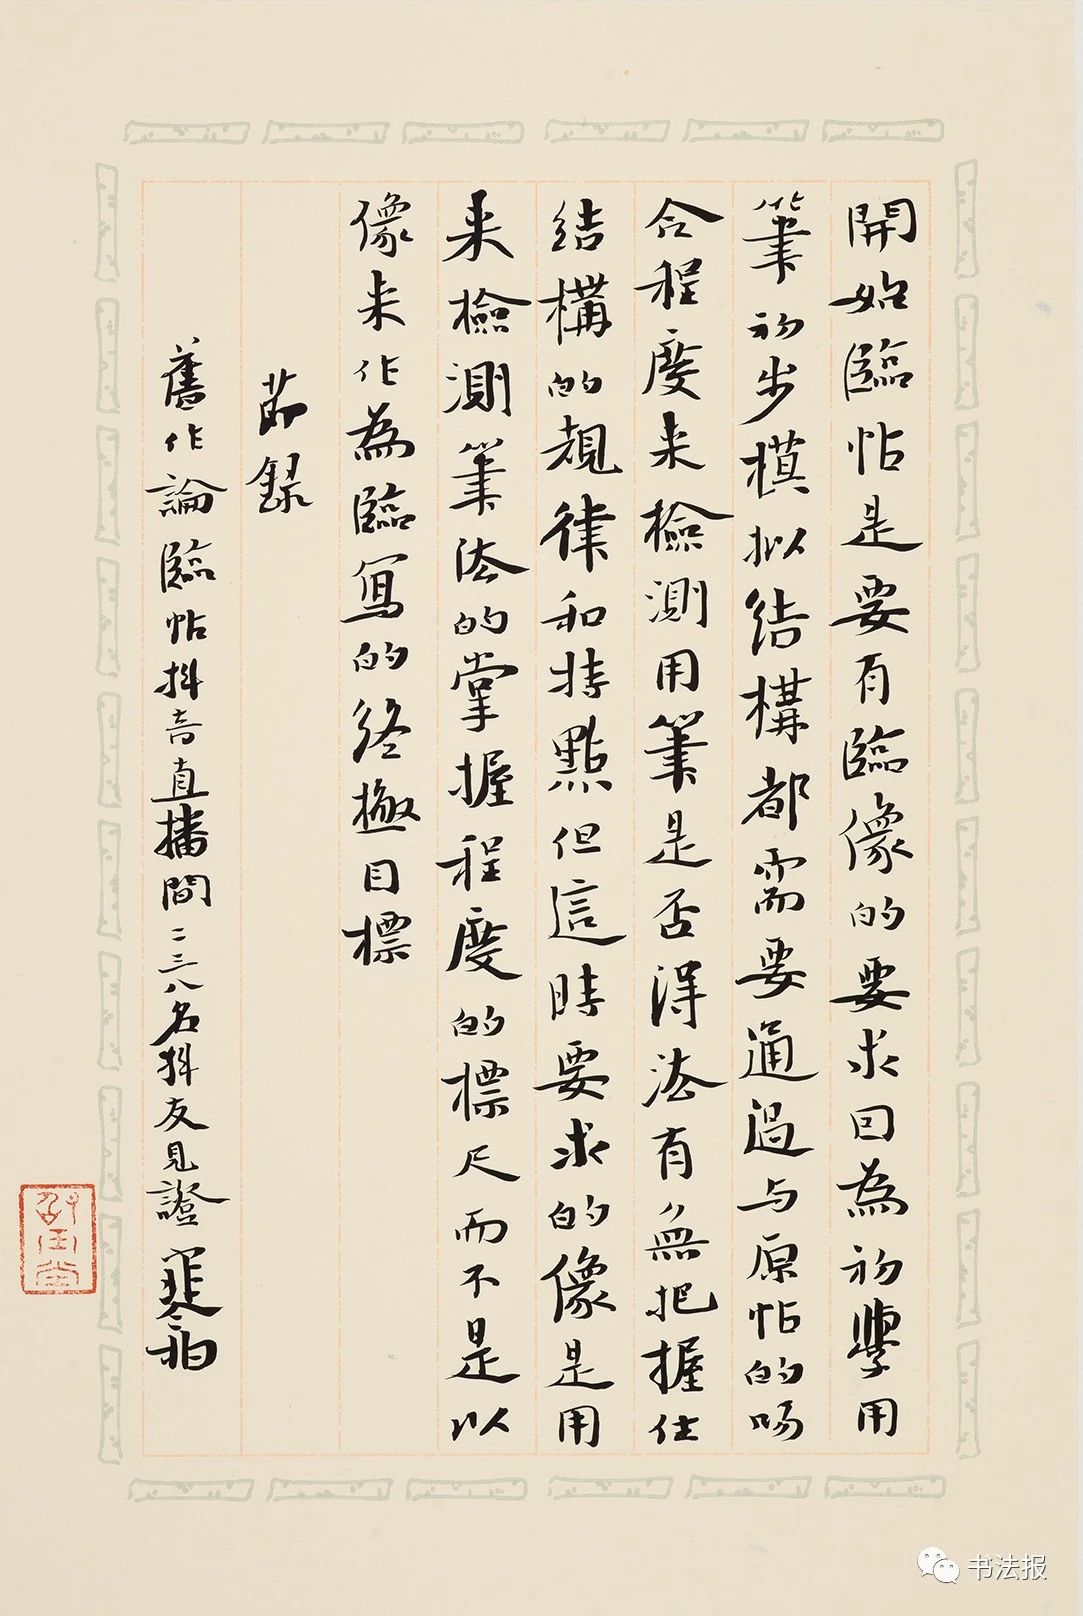 開始臨帖是要有臨像的要求囙為初學用
筆初步模拟結構都需要通過与原帖的吻
合程度来檢測用筆是否得法有無把握住
結構的規律和特點但這時要求的像是用
来檢測筆法的掌握程度的標尺而不是以
像来作為臨寫的終極目標
節録
舊作論臨帖抖音直播間二三八名抖友見證
书法报